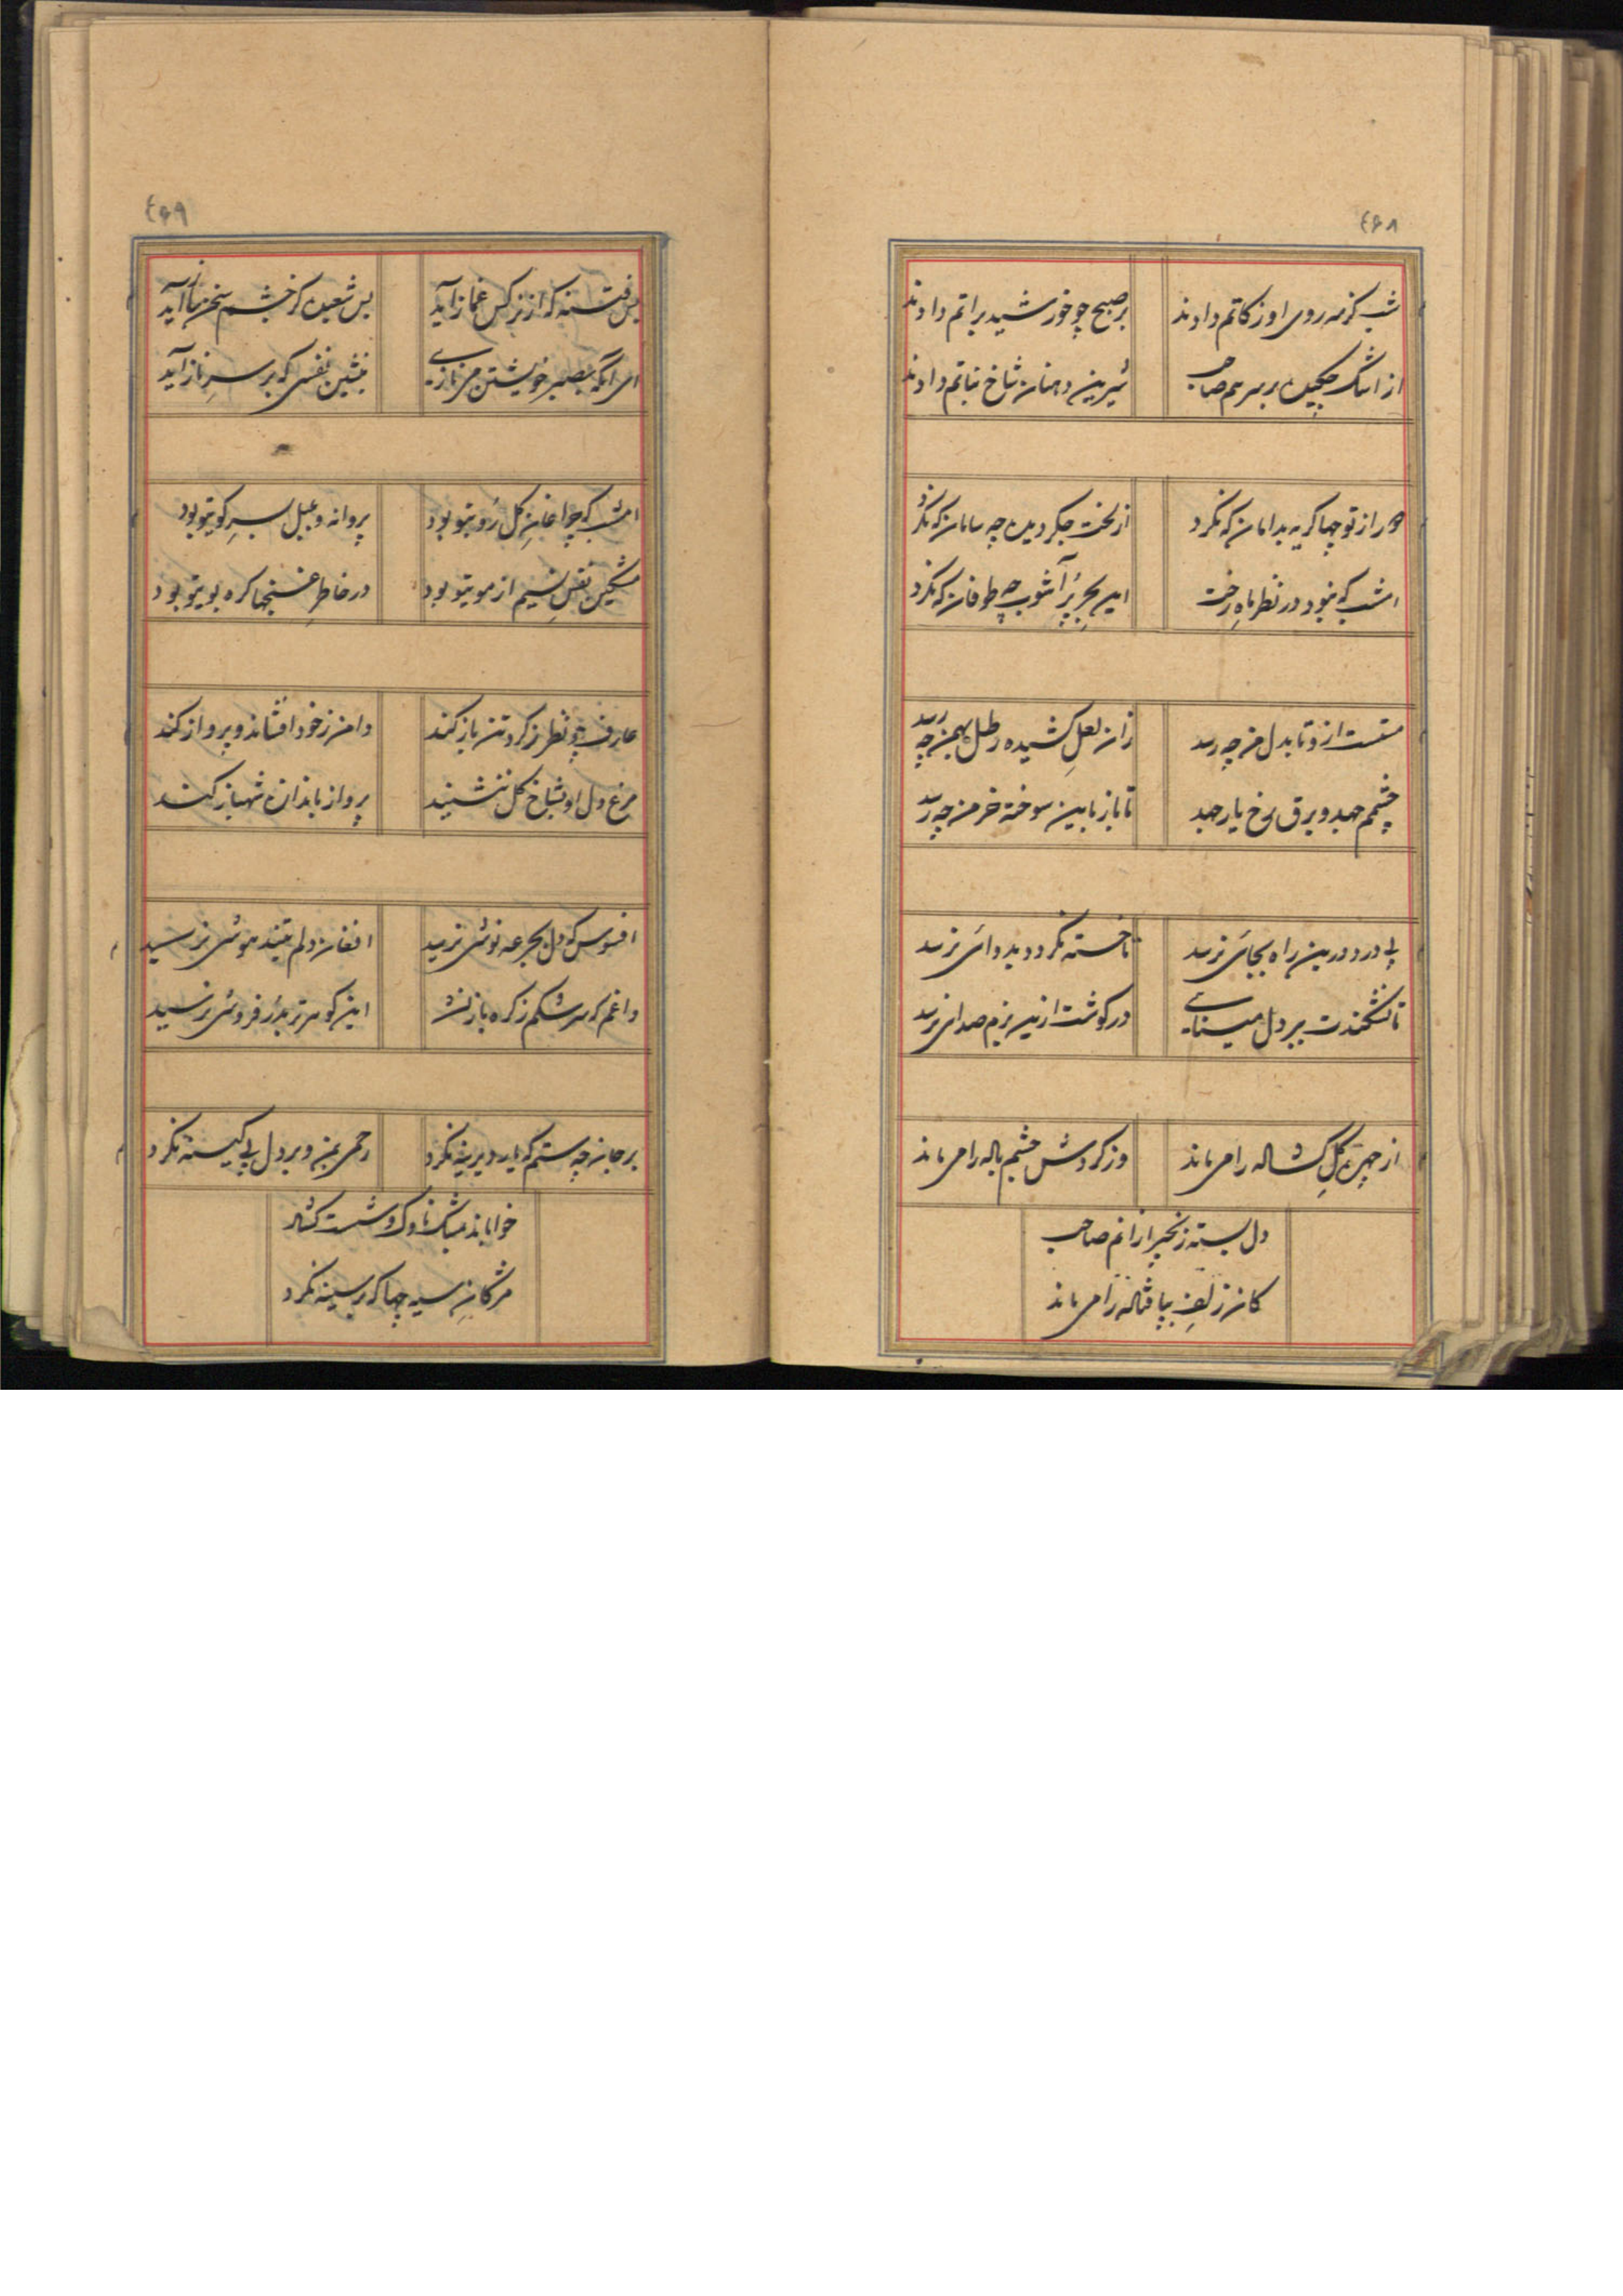 ۴۶۸
شب کز مه روی او زکاتم دادند
بر صبح چو خورشید براتم دادند
از اشک چکیده بر سرم صاحب
شیرین دهنان شاخ نباتم دادند
از تو چها گریه بدامان که نکرد
از لخت جگر دیده چه سامان که نکرد
امشب که نبود در نظر ماه رخت
این بحر پر آشوب چه طوفان که نکرد
مستست ازو تا بدل من چه رسد
زان لعل کشیده رطل بمن چه رسد
چشم جهد و برق رخ یار جهد
تا باز باین سوخته خرمن چه رسد
بی درد درین راه بجائی نرسد
تا خسته نگردد بدوائی نرسد
تا نشکندت بر دل مینائی
در گوشت ازین بزم صدائی نرسد
از چهره گل لاله را می ماند
وز گردش چشم پیاله را می ماند
دل بسته زنجیر ازانم صاحب
کان زلف بپا را می ماند
۴۶۹
بس فتنه که از نرگس غماز آید
بس شعبده کز چشم آید
ای آنکه بصبر خویشتن می نازی
بنشین نفسی که بر سر ناز آید
امشب که چراغان گل روی تو بود
پروانه و بلبل سر کوی تو بود
مشکین نفس نسیم از موی تو بود
در خاطر غنچها گره بوی تو بود
عارف چو نظر ز گرد تن باز کند
دامن ز خود افشاند و پرواز کند
مرغ دل او بشاخ گل ننشیند
پرواز باندازه شهباز کند
افسوس که دل بجرعه نوشی نرسید
افغان دلم بتیز هوشی نرسید
داغم که سرشکم ز گره باز نشد
این گوهر تر بدر فروشی نرسید
بر جان چه ستم که یار دیرینه نکرد
رحمی بمن و بر دل بی کینه نکرد
خواباند ناوک و شست گشاد
مژگان سیه چها که بر سینه نکرد